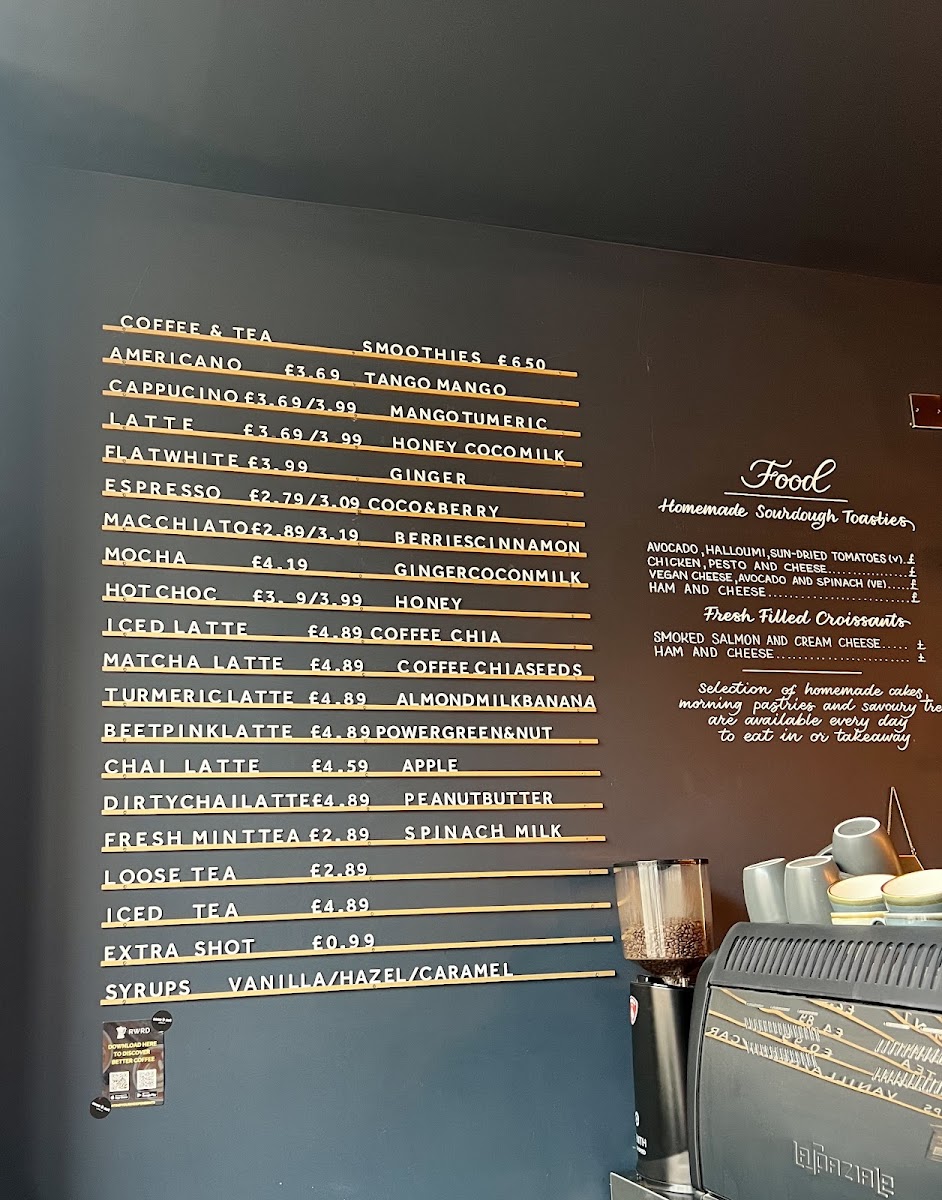 COFFEE & TEA
AMERICANO £3.69
CAPPUCINO £3.69/3.99
LATTE £3.69/3.99
FLATWHITE £3.99
ESPRESSO £2.79/3.09
MACCHIATO £2.89/3.19
MOCHA £4.19
HOT CHOC £3. 9/3.99
ICED LATTE £4.89
MATCHA LATTE £4.89
TURMERIC LATTE £4.89
BEETPINKLATTE £4.89
CHAI LATTE £4.59
DIRTYCHAILATTE £4.89
FRESH MINTTEA £2.89
LOOSE TEA £2.89
ICED TEA £4.89
EXTRA SHOT £0.99
SYRUPS VANILLA/HAZEL/CARAMEL
SMOOTHIES £6 50
TANGO MANGO
MANGOTUMERIC
HONEY COCOMILK
GINGER
COCO&BERRY
BERRIESCINNAMON
GINGERCOCONMILK
HONEY
COFFEE CHIA
COFFEE CHIASEEDS
ALMONDMILKBANANA
POWERGREEN&NUT
APPLE
PEANUTBUTTER
SPINACH MILK
Food
Homemade Sourdough Toasties
AVOCADO, HALLOUMI, SUN-DRIED TOMATOES (V). £
CHICKEN, PESTO AND CHEESE............... £
VEGAN CHEESE, AVOCADO AND SPINACH (VE)..... £
HAM AND CHEESE........................ £
Fresh Filled Croissants
SMOKED SALMON AND CREAM CHEESE..... £
HAM AND CHEESE...................... £
Selection of homemade cakes,
morning pastries and savoury tre
are available every day
to eat in or takeaway.
RWRD
DOWNLOAD HERE
TO DISCOVER
BETTER COFFEE
laspaziale